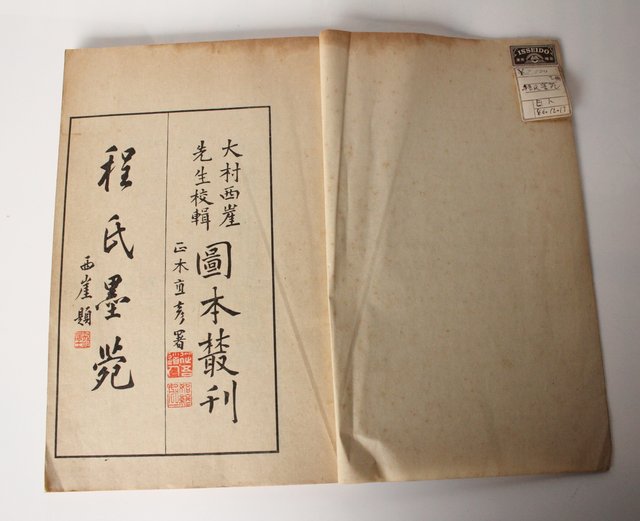 大村西崖
先生校輯
圖本叢刊
正木直彥署
程氏墨苑
西崖題
ISSEIDO